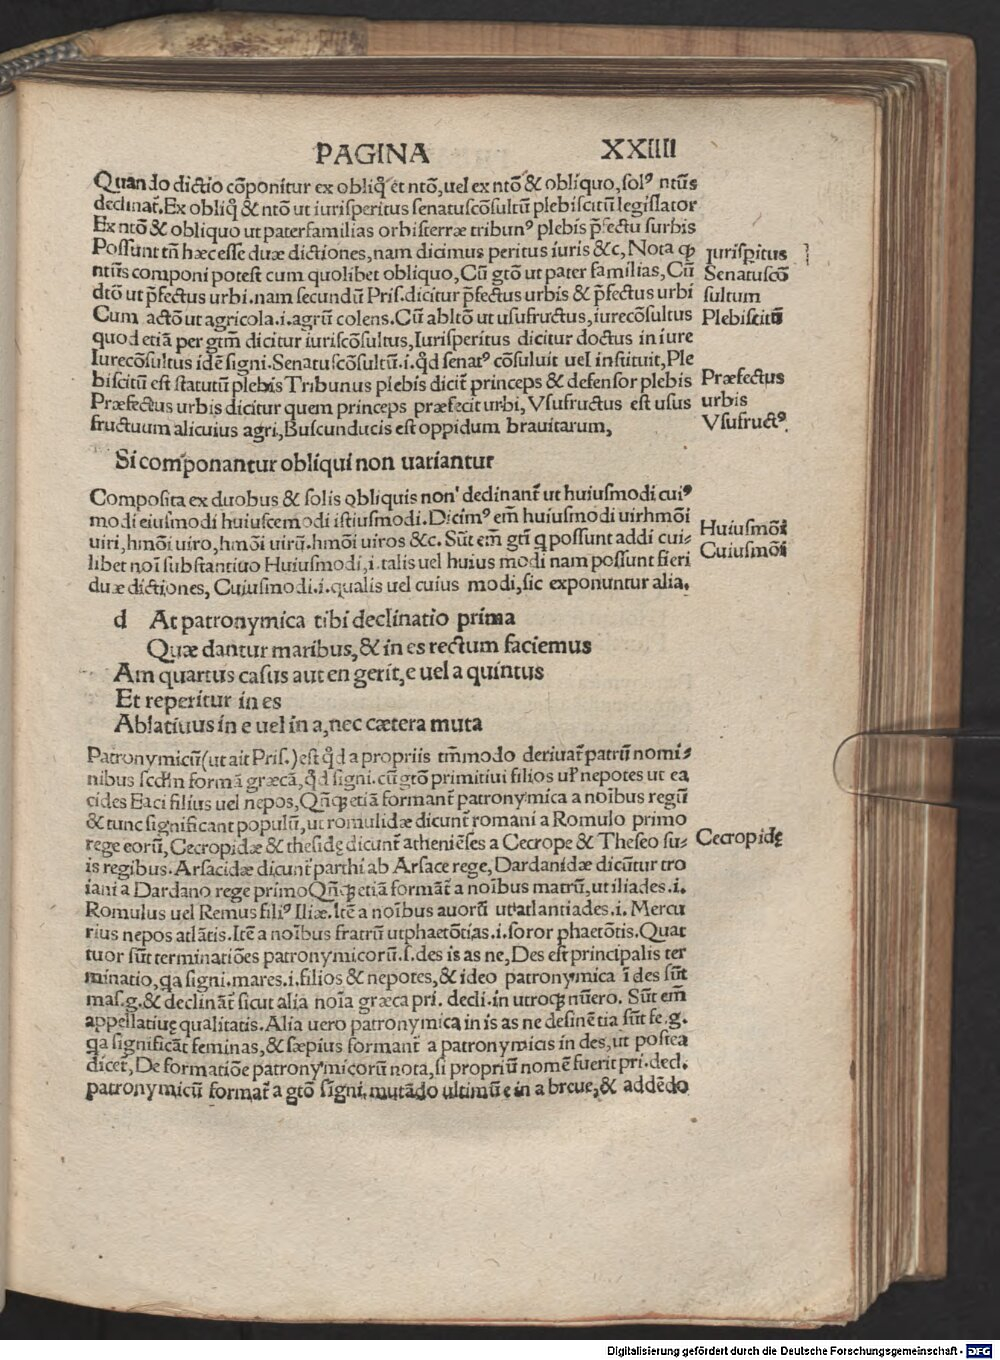 PAGINA XXIIII
Quando dictio cōponitur ex obliq̄ et ntō, uel ex ntō & obliquo, solꝰ ntūs
declinat̄. Ex obliq̄ & ntō ut iurisperitus senatuscōsultū plebiscitū legislator
Ex ntō & obliquo ut paterfamilias orbisterræ tribunꝰ plebis p̄fectu surbis
Possunt tn̄ hæc esse duæ dictiones, nam dicimus peritus iuris &c, Nota ꝙ
ntūs componi potest cum quolibet obliquo, Cū gtō ut pater familias, Cū
dtō ut p̄fectus urbi. nam secundū Pris. dicitur p̄fectus urbis & p̄fectus urbi
Cum actō ut agricola .i. agrū colens. Cū abltō ut usufructus, iurecōsultus
quod etiā per gtm̄ dicitur iuriscōsultus, Iurisperitus dicitur doctus in iure
Iurecōsultus idē signi. Senatuscōsultū .i. qd̄ senatꝰ cōsuluit uel instituit, Ple
biscitū est statutū plebis Tribunus plebis dicit̄ princeps & defensor plebis
Præfectus urbis dicitur quem princeps præfecit urbi, Vsufructus est usus
fructuum alicuius agri, Buscunducis est oppidum brauitarum,
iurisp̱itus
Senatuscō
sultum
Plebiscitū
Præfectus
urbis
Vsufructꝰ.
Si componantur obliqui non uariantur
Composita ex duobus & solis obliquis non declinant̄ ut huiusmodi cuiꝰ
modi eiusmodi huiuscemodi istiusmodi. Dicimꝰ em̄ huiusmodi uir hmōi
uiri, hmōi uiro, hmōi uirū. hmōi uiros &c. Sūt em̄ gtī q̄ possunt addi cui⸗
libet noī substantiuo Huiusmodi, i. talis uel huius modi nam possunt fieri
duæ dictiones, Cuiusmodi .i. qualis uel cuius modi, sic exponuntur alia.
Huiusmōi
Cuiusmōi
d At patronymica tibi declinatio prima
Quæ dantur maribus, & in es rectum faciemus
Am quartus casus aut en gerit, e uel a quintus
Et reperitur in es
Ablatiuus in e uel in a, nec cætera muta
Patronymicū (ut ait Pris.) est qd̄ a propriis tm̄modo deriuat̄ patrū nomi⸗
nibus scd̄m formā græcā, qd̄ signi. cū gtō primitiui filios uł nepotes ut ea
cides Eaci filius uel nepos, Qn̄qꝫ etiā formant̄ patronymica a noībus regū
& tunc significant populū, ut romulidæ dicunt̄ romani a Romulo primo
rege eorū, Cecropidæ & thesidę dicunt̄ atheniēses a Cecrope & Theseo su⸗
is regibus. Arsacidæ dicunt̄ parthi ab Arsace rege, Dardanidæ dicūtur tro
iani a Dardano rege primo Qn̄qꝫ etiā formāt̄ a noībus matrū, ut iliades .i.
Romulus uel Remus filiꝰ Iliæ. Itē a noībus auorū ut atlantiades .i. Mercu
rius nepos atlātis. Itē a noībus fratrū ut phaetōtias .i. soror phaetōtis. Quat
tuor sūt terminatiōes patronymicorū .s. des is as ne, Des est principalis ter
minatio, qa signi. mares .i. filios & nepotes, & ideo patronymica ī des sūt
mas. g. & declināt̄ sicut alia noīa græca pri. decli. in utroqꝫ nūero. Sūt em̄
appellatiuę qualitatis. Alia uero patronymica in is as ne desinētia sūt fe. g.
qa significāt feminas, & sæpius formant̄ a patronymicis in des, ut postea
dicet̄, De formatiōe patronymicorū nota, si propriū nomē fuerit pri. decl.
patronymicū format̄ a gtō signi. mutādo ultimū e in a breue, & addēdo
Cecropidę
Digitalisierung gefördert durch die Deutsche Forschungsgemeinschaft - DFG